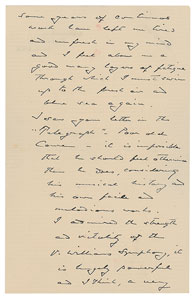 some years of continual
work have left me tired
and in my mind
and I feel down a
good many layers of fatigue
through which I must swim
up to the fresh air and
blue sea again.
I saw your letter in the
"Telegraph". Poor old
Cowen - it is impossible
that he should feel otherwise
than he does, considering
his musical history and
his own facile and
melodious works.
I admired the strength
and vitality of the
V. Williams Symphony, it
is hugely powerful
and I think, a very